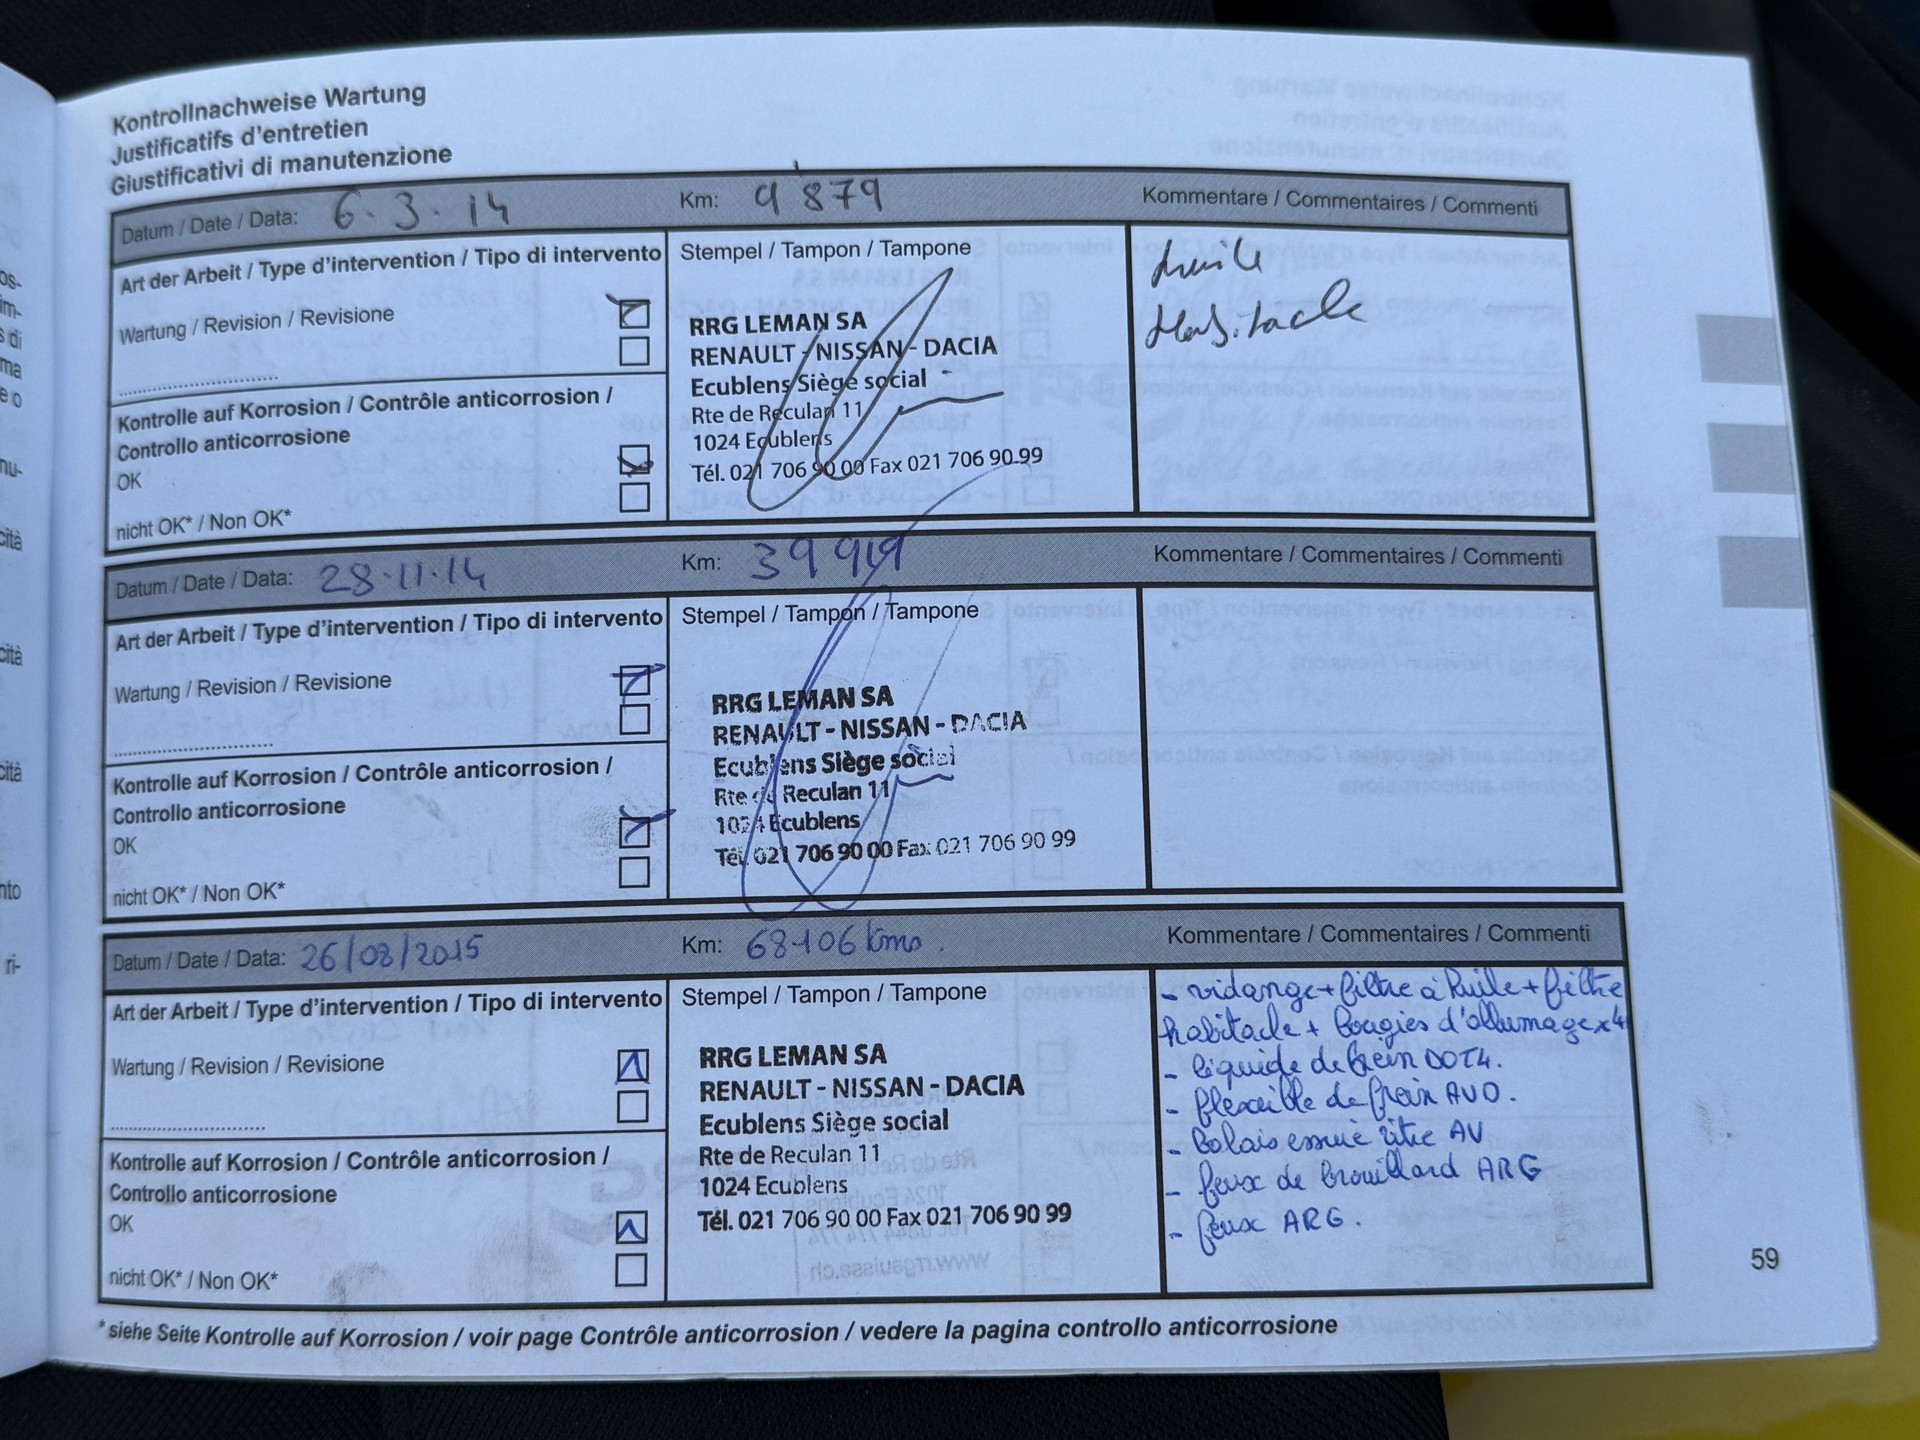 Kontrollnachweise Wartung
Justificatifs d'entretien
Giustificativi di manutenzione
Datum / Date / Data: 6.3.14 Km: 9'879 Kommentare / Commentaires / Commenti
Art der Arbeit / Type d'intervention / Tipo di intervento
Stempel / Tampon / Tampone
huile
Habitacle
Wartung / Revision / Revisione
RRG LEMAN SA
RENAULT - NISSAN - DACIA
Ecublens Siège social
Rte de Reculan 11
1024 Ecublens
Tél. 021 706 90 00 Fax 021 706 90 99
Kontrolle auf Korrosion / Contrôle anticorrosion /
Controllo anticorrosione
OK
nicht OK* / Non OK*
Datum / Date / Data: 28.11.14 Km: 39 919 Kommentare / Commentaires / Commenti
Art der Arbeit / Type d'intervention / Tipo di intervento
Stempel / Tampon / Tampone
Wartung / Revision / Revisione
RRG LEMAN SA
RENAULT - NISSAN - DACIA
Ecublens Siège social
Rte de Reculan 11
1024 Ecublens
Tél. 021 706 90 00 Fax 021 706 90 99
Kontrolle auf Korrosion / Contrôle anticorrosion /
Controllo anticorrosione
OK
nicht OK* / Non OK*
Datum / Date / Data: 26/08/2015 Km: 68106 kms. Kommentare / Commentaires / Commenti
Art der Arbeit / Type d'intervention / Tipo di intervento
Stempel / Tampon / Tampone
- vidange + filtre à huile + filtre
habitacle + bougies d'allumage x4
- liquide de frein DOT4.
- flexible de frein AVD.
- Balais essuie vitre AV
- feux de brouillard ARG
- feux ARG.
Wartung / Revision / Revisione
RRG LEMAN SA
RENAULT - NISSAN - DACIA
Ecublens Siège social
Rte de Reculan 11
1024 Ecublens
Tél. 021 706 90 00 Fax 021 706 90 99
Kontrolle auf Korrosion / Contrôle anticorrosion /
Controllo anticorrosione
OK
nicht OK* / Non OK*
* siehe Seite Kontrolle auf Korrosion / voir page Contrôle anticorrosion / vedere la pagina controllo anticorrosione
59